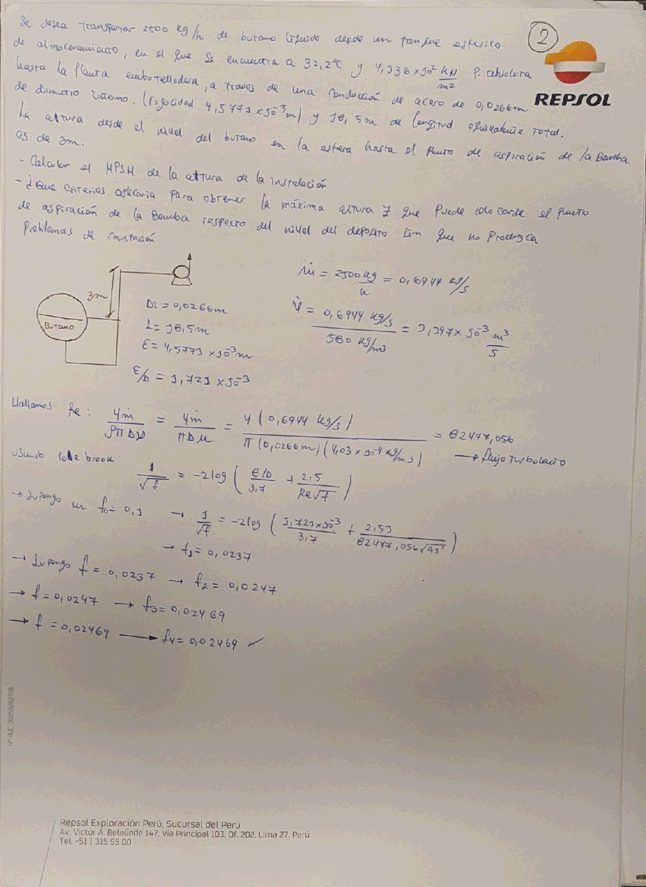 Se desea transportar 2500 kg/h de butano líquido desde un tanque esférico
de almacenamiento, en el que se encuentra a 32,2°C y 4,336x10² kN/m² P. absoluta
hasta la planta embotelladora, a través de una conducción de acero de 0,0266m
de diámetro interno. (rugosidad 4,5773x10⁻⁵m) y 18,5m de longitud equivalente total.
La altura desde el nivel del butano en la esfera hasta el punto de aspiración de la Bomba
es de 3m.
- Calcular el NPSH de la altura de la instalación
- ¿Que criterios para obtener la máxima altura Z que puede el punto
de aspiración de la Bomba respecto del nivel del deposito sin que se produzca
Problemas de cavitación
2
REPSOL
3m
Butano
Di = 0,0266m
L = 18,5m
ε = 4,5773 x10⁻⁵m
ε/D = 1,721 x10⁻³
ṁ = 2500 kg/h = 0,6944 kg/s
V̇ = 0,6944 kg/s / 580 kg/m³ = 1,197x10⁻³ m³/s
Hallamos Re: 4ṁ/ρπDν = 4ṁ/πDμ = 4(0,6944 kg/s) / π(0,0266m)(4,03x10⁻⁴ kg/m s) = 82477,056
→ flujo turbulento
usando colebrook 1/√f = -2log(ε/D/3,7 + 2,5/Re√f)
→ Supongo un f₀ = 0,1 → 1/√f = -2log(1,721x10⁻³/3,7 + 2,51/82477,056√0,1)
→ f₁ = 0,0237
→ Supongo f = 0,0237 → f₂ = 0,0247
→ f = 0,0247 → f₃ = 0,02469
→ f = 0,02469 → f₄ = 0,02469 ✓
Repsol Exploración Perú, Sucursal del Perú
Av. Víctor A. Belaúnde 147, Vía Principal 103, Of. 202. Lima 27. Perú
Tel. +51 1 315 95 00